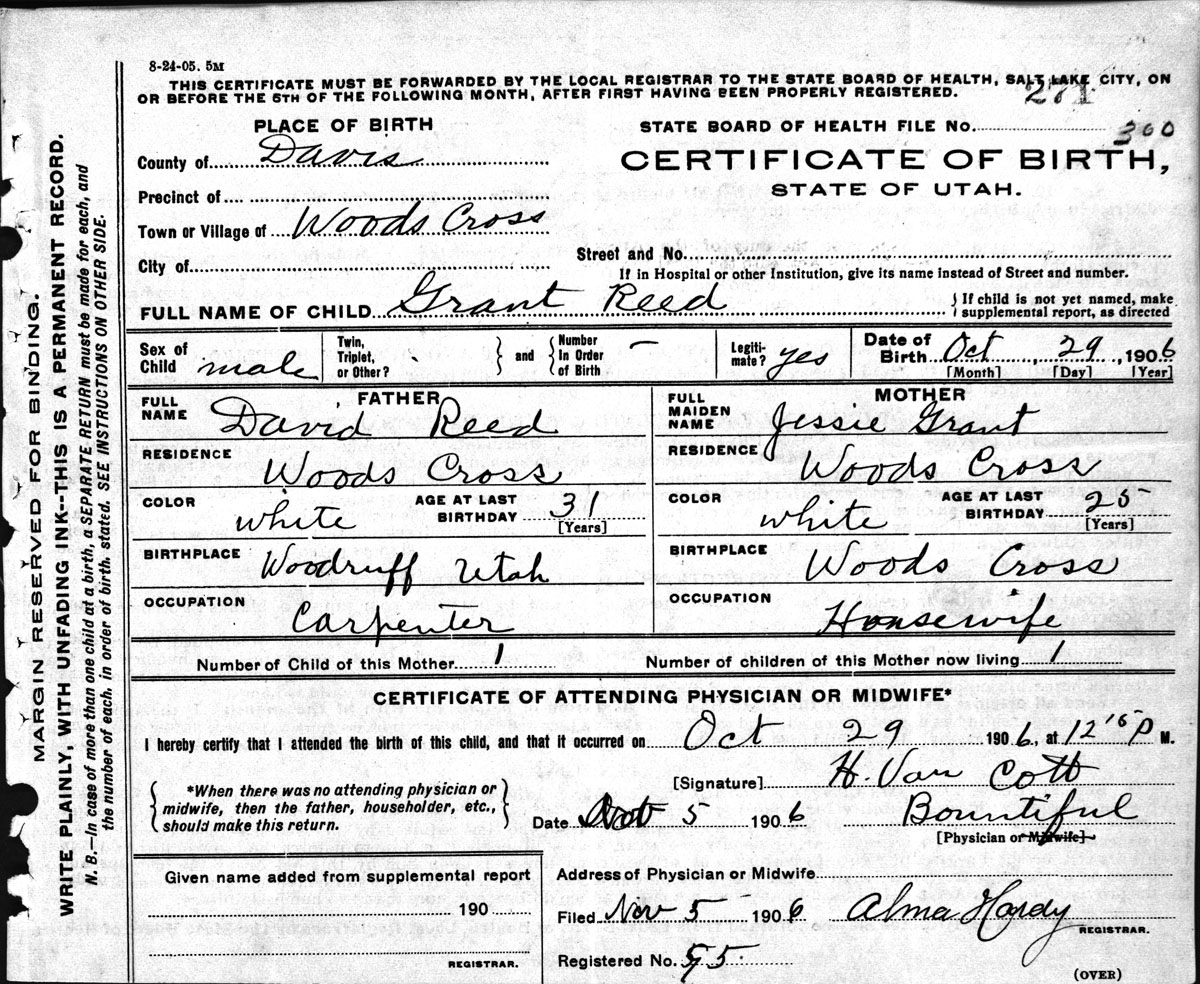 8-24-05. 5M
THIS CERTIFICATE MUST BE FORWARDED BY THE LOCAL REGISTRAR TO THE STATE BOARD OF HEALTH, SALT LAKE CITY, ON
OR BEFORE THE 5TH OF THE FOLLOWING MONTH, AFTER FIRST HAVING BEEN PROPERLY REGISTERED.
271
PLACE OF BIRTH
STATE BOARD OF HEALTH FILE No. 300
County of Davis
CERTIFICATE OF BIRTH,
STATE OF UTAH.
Precinct of
Town or Village of Woods Cross
Street and No.
City of
If in Hospital or other Institution, give its name instead of Street and number.
FULL NAME OF CHILD Grant Reed
{ If child is not yet named, make
supplemental report, as directed
Sex of Child male
Twin, Triplet, or Other? } and { Number In Order of Birth –
Legiti-mate? yes
Date of Birth Oct, 29, 1906
[Month] [Day] [Year]
FATHER
FULL NAME David Reed
MOTHER
FULL MAIDEN NAME Jessie Grant
RESIDENCE Woods Cross
RESIDENCE Woods Cross
COLOR white AGE AT LAST BIRTHDAY 31 [Years]
COLOR white AGE AT LAST BIRTHDAY 25 [Years]
BIRTHPLACE Woodruff Utah
BIRTHPLACE Woods Cross
OCCUPATION Carpenter
OCCUPATION Housewife
Number of Child of this Mother 1
Number of children of this Mother now living 1
CERTIFICATE OF ATTENDING PHYSICIAN OR MIDWIFE*
I hereby certify that I attended the birth of this child, and that it occurred on Oct 29 1906, at 12 15 P M.
{ *When there was no attending physician or
midwife, then the father, householder, etc.,
should make this return. }
[Signature] H. Van Cott
Date 5 1906 Bountiful
[Physician or Midwife]
Given name added from supplemental report
190
REGISTRAR.
Address of Physician or Midwife
Filed Nov 5 1906 Alma Hardy
REGISTRAR.
Registered No. 95.
(OVER)
MARGIN RESERVED FOR BINDING.
WRITE PLAINLY, WITH UNFADING INK--THIS IS A PERMANENT RECORD.
N. B.—In case of more than one child at a birth, a SEPARATE RETURN must be made for each, and
the number of each, in order of birth, stated. SEE INSTRUCTIONS ON OTHER SIDE.